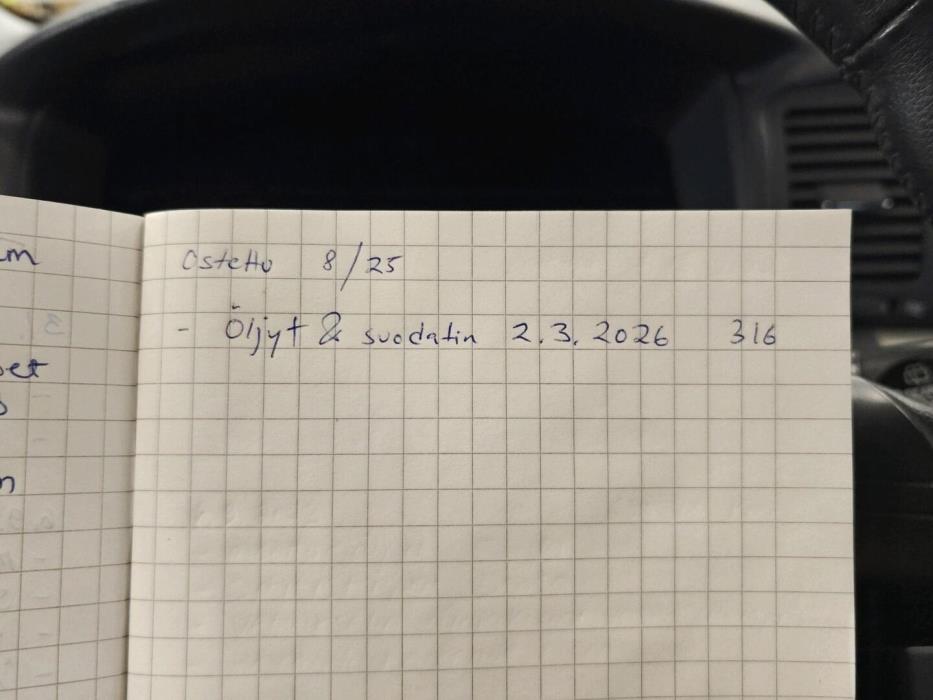 m
Ostettu 8/25
- Öljyt & suodatin 2.3.2026 316
et
n